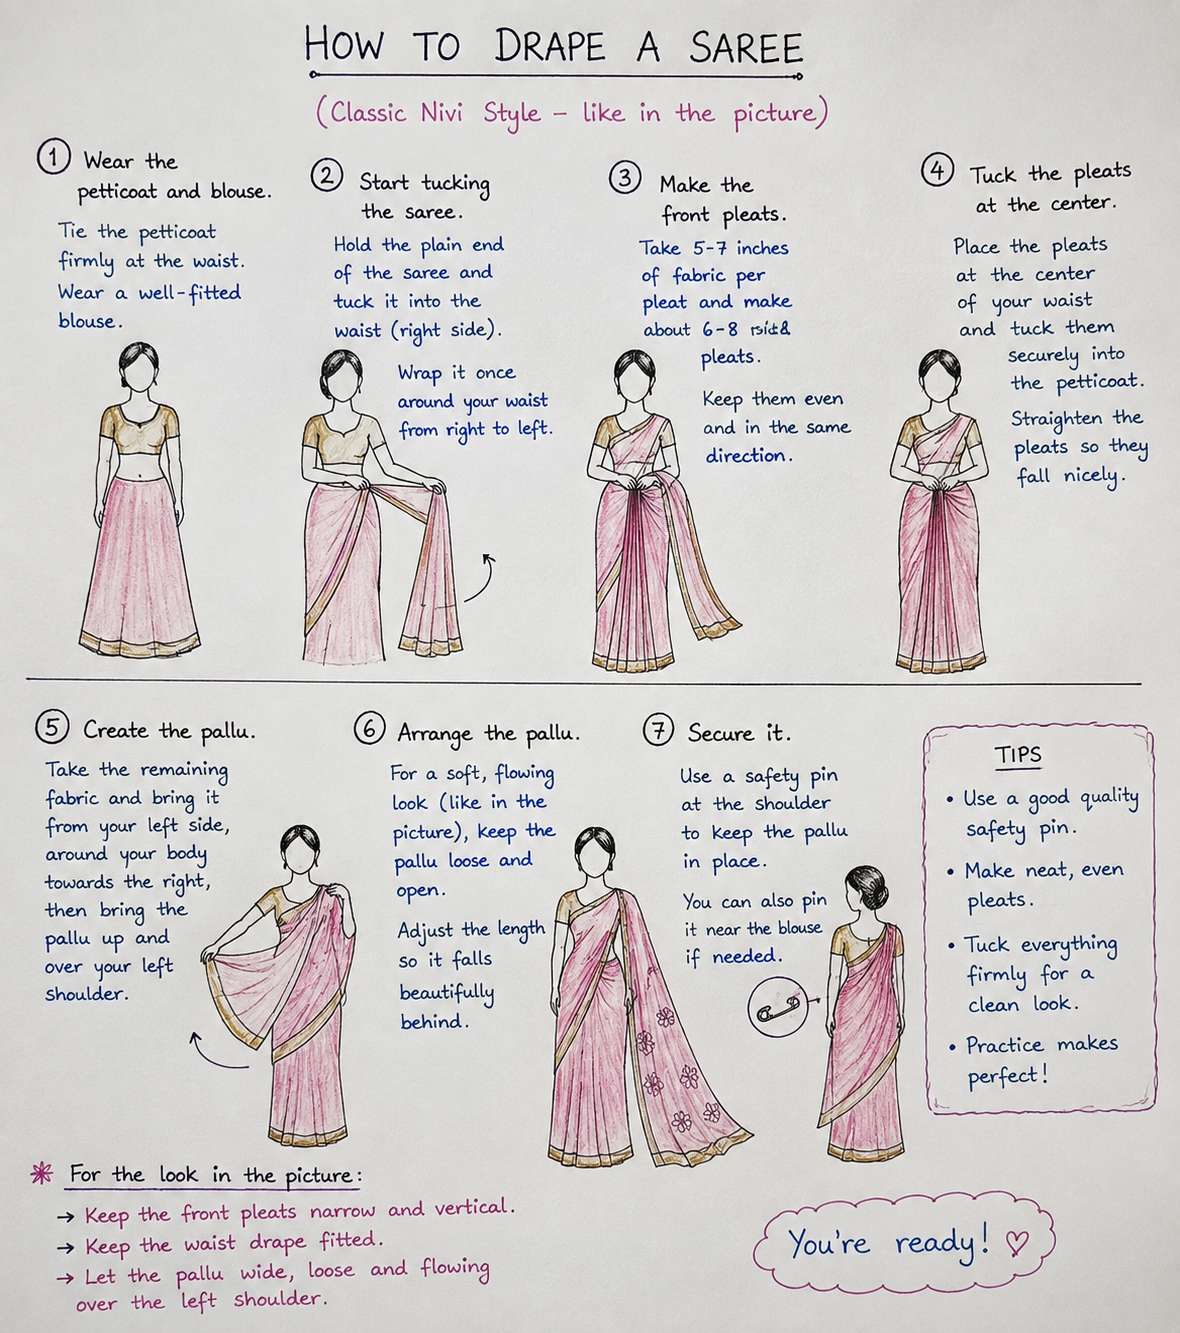 HOW TO DRAPE A SAREE
(Classic Nivi Style – like in the picture)
1 Wear the
petticoat and blouse.
Tie the petticoat
firmly at the waist.
Wear a well-fitted
blouse.
2 Start tucking
the saree.
Hold the plain end
of the saree and
tuck it into the
waist (right side).
Wrap it once
around your waist
from right to left.
3 Make the
front pleats.
Take 5-7 inches
of fabric per
pleat and make
about 6-8
pleats.
Keep them even
and in the same
direction.
4 Tuck the pleats
at the center.
Place the pleats
at the center
of your waist
and tuck them
securely into
the petticoat.
Straighten the
pleats so they
fall nicely.
5 Create the pallu.
Take the remaining
fabric and bring it
from your left side,
around your body
towards the right,
then bring the
pallu up and
over your left
shoulder.
6 Arrange the pallu.
For a soft, flowing
look (like in the
picture), keep the
pallu loose and
open.
Adjust the length
so it falls
beautifully
behind.
7 Secure it.
Use a safety pin
at the shoulder
to keep the pallu
in place.
You can also pin
it near the blouse
if needed.
TIPS
• Use a good quality
safety pin.
• Make neat, even
pleats.
• Tuck everything
firmly for a
clean look.
• Practice makes
perfect!
For the look in the picture:
→ Keep the front pleats narrow and vertical.
→ Keep the waist drape fitted.
→ Let the pallu wide, loose and flowing
over the left shoulder.
You're ready! ♡